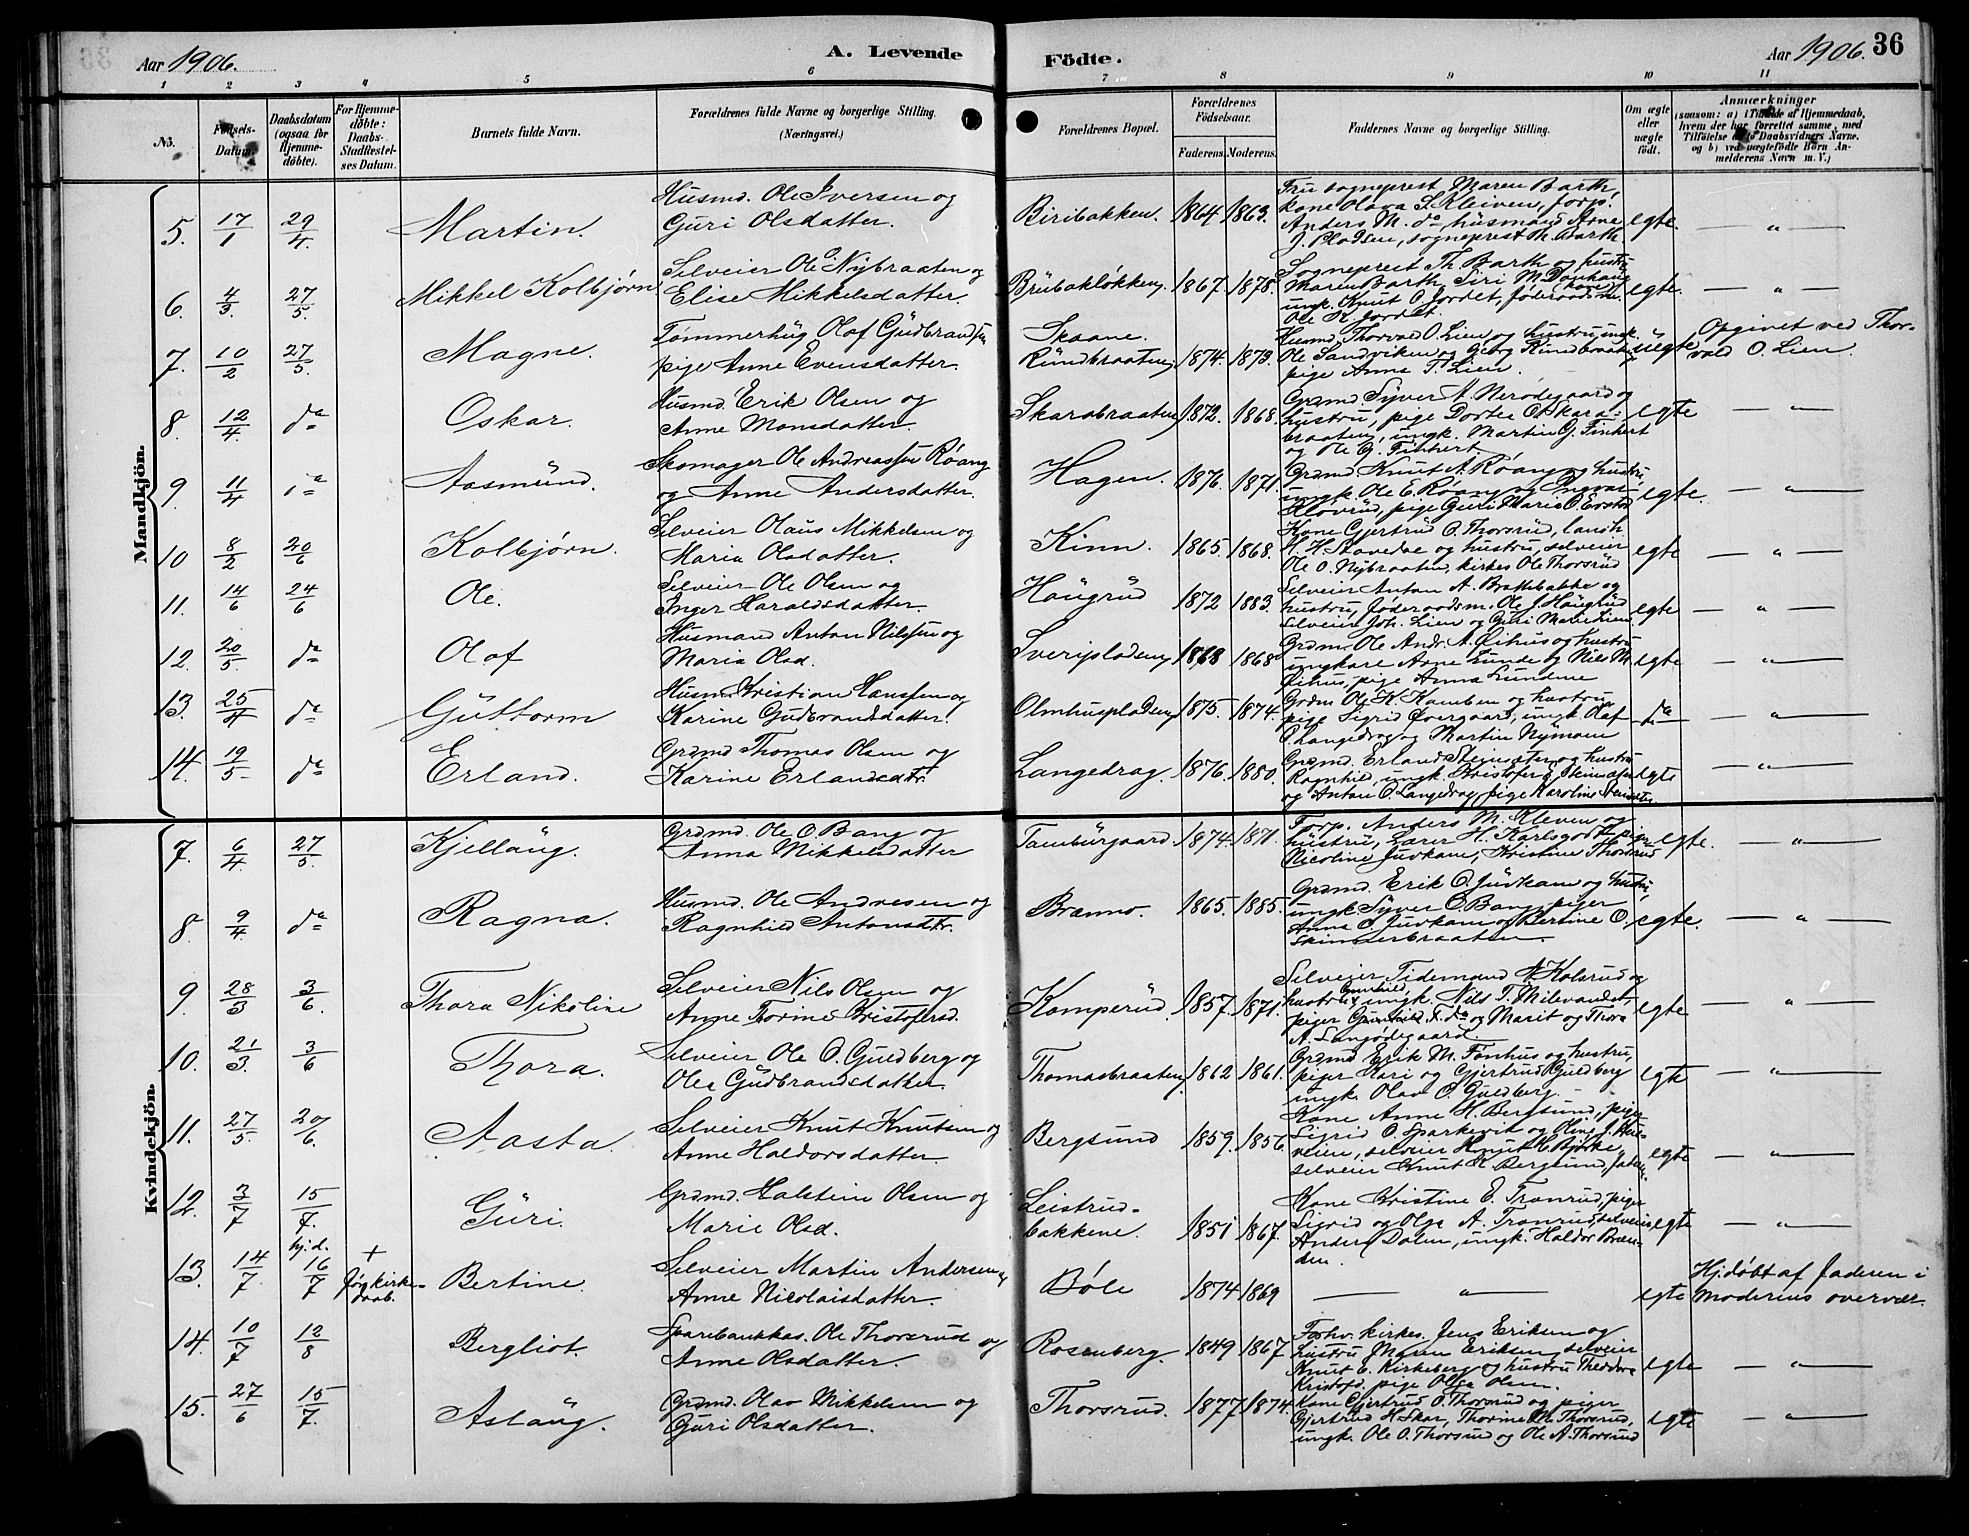 Aar 1906.
A. Levende
Födte.
Aar 1906.
36
1 2 3 4 5 6 7 8 9 10 11
No.
Fødsels-Datum.
Daabsdatum (ogsaa for Hjemme-döbte).
For Hjemme-döbte: Daabs-Stadfæstel-ses Datum.
Barnets fulde Navn.
Forældrenes fulde Navne og borgerlige Stilling. (Næringsvei.)
Forældrenes Bopæl.
Forældrenes Fødselsaar.
Faderens. Moderens.
Faddernes Navne og borgerlige Stilling.
Om ægte eller uægte födt.
Anmærkninger
(saasom: a) i Tilfælde af Hjemmedaab, hvem der har forrettet samme, med Tilföielse af to Daabsvidners Navne. og b) ved uægtefödte Börn Anmelderens Navn m. V.)
Mandkjön.
5. 17/1 29/4. Martin. Husmd. Ole Iversen og Guri Olsdatter. Biribakken. 1864. 1863. Fru sogneprest Maren Barth, kone Olava S. Kleiven, forp. Anders M. do, husmand Arne J. Pladsen, sogneprest Th. Barth. egte. — " —
6. 4/3. 27/5. Mikkel Kolbjørn Selveier Ole Nybraaten og Elise Mikkelsdatter. Brubakløkken, 1867. 1878. Sogneprest Th. Barth og hustru Maren Barth, Siri M. ungk. Knut O. Jordet, Ole K. Jordet. egte. — " —
7. 10/2 27/5. Magne. Tømmerhug. Olaf Gudbrandsen pige Anne Evensdatter. Skaane. Rundbraaten, 1874. 1873. Husmd. Thorvald O. Lien og hustru, ungk. Ole Sandviken og Georg Rundbraaten, pige Anna T. Lien. uegte Opgivet ved Thorvald O. Lien.
8. 12/4 do Oskar. Husmd. Erik Olsen og Anne Monsdatter. Skarabraaten, 1872. 1868. Grdmd. Syver A. Nerødegaard og hustru, pige Dortea O. Skarabraaten, ungk. Martin G. Finhert og Ole G. Finhert. egte — " —
9. 11/4 do Aasmund. Skomager Ole Andreassen Røang og Anne Andersdatter. Hagen. 1876. 1871. Grdmd. Knut A. Røang og hustru, ungk. Ole E. Røang og Ingvar pige Guri Marie O. egte. — " —
10 8/2 20/6 Kolbjørn. Selveier Olaus Mikkelsen og Maria Olsdatter. Kinn. 1865. 1868. Kone Gjertrud O. Thorsrud, landh. H. H. og hustru, selveier Ole O. Nybraaten, kirkes. Ole Thorsrud egte — " —
11. 14/6 24/6 Ole. Selveier Ole Olsen og Inger Haraldsdatter. Haugrud 1872 1883. Selveier Anton A. Brattebakke og hustru, Ole J. Haugrud selveier Joh. Lien og Guri Marie Lien egte — " —
12. 20/5. do Olaf Husmand Anton Nilssen og Maria Olsd. Sveripladsen, 1868 1868 Grdm. Ole Andr. A. og hustru ungkare Arne Lunde og Nils M. pige Anna Lundene egte — " —
13. 25/4 do Guttorm Husm. Kristian Hanssen og Karine Gudbrandsdatter. Olmhuspladsen, 1875. 1874. Grdm Ole H. og hustru pige Sigrid Øvergaard, ungk. Olaf O. Langedrag og Martin Nymoen do — " —
14. 19/5. do Erland. Grdmd Thomas Olsen og Karine Erlandsdtr. Langedrag. 1876. 1880. Grdmd. Erland og hustru Ragnhild, ungk. Kristofer og Anton O. Langedrag, pige Karoline egte — " —
Kvindekjön.
7. 6/4. 27/5. Kjellaug. Grdmd. Ole O. Bang og Anna Mikkelsdatter Tamburgaard. 1874. 1871. Forp. Anders M. Kleven og hustru, Lærer H. Karlsgodt, piger Nicoline Juvkam, Kristine Thorsrud egte. — " —
8. 9/4. do Ragna. Husmd. Ole Andresen og Ragnhild Antonsdtr. Brænno. 1865. 1885. Grdmd. Erik O. Juvkam og hustru, ungk. Syver O. Bang, piger Anna O. Juvkam og Bertine O. Skinnerbraaten. egte. — " —
9 28/3 3/6. Thora Nikoline Selveier Nils Olsen og Anne Torine Kristofersd. Komperud. 1857. 1871. Selveier Tidemand N. Kolsrud og hustru Gunhild, ungk. Nils T. Milevandet, piger Gunhild T. do og Marit og Thora A. Langødegaard egte — " —
10. 21/3. 3/6 Thora. Selveier Ole O. Guldberg og Olea Gudbrandsdatter. Thomasbraaten, 1862 1861. Grdmd Erik M. Fønhus og hustru, piger Kari og Gjertrud Guldberg ungk. Olav O. Guldberg. egte — " —
11. 27/5. 20/6. Aasta. Selveier Knut Knutsen og Anne Haldorsdatter. Bergsund 1859. 1856. Kone Anne H. Bergsund, piger Sigrid O. Sparkevik og Oline J. selveier Knut H. Bjørke, selveier Knut K. Bergsund, egte — " —
12. 3/7 15/7. Guri. Grdmd. Halstein Olsen og Marie Olsd. Leistrud-bakkene. 1851 1867. Kone Kristine E. Tronrud, piger Sigrid og Olga A. Tronrud, selveier Anders Dalen, ungk. Haldor Brænden. egte — " —
13. 14/7. hj. d. 16/7 + Bertine. Selveier Martin Andersen og Anne Nicolaisdatter. Bøle 1874 1869 — " — egte Hj.døbt af faderen i moderens overvær.
14. 10/7 12/8 Bergliot. Sparebankkas. Ole Thorsrud og Anne Olsdatter. Rosenberg. 1849 1867 Forhv. kirkes. Jens Eriksen og hustru Maren Eriksen, selveier Knut E. Kirkeberg og hustru Theodora Kristofd. pige Olga Olsen. egte — " —
15. 27/6 15/7. Aslaug. Grdmd. Olav Mikkelsen og Guri Olsdatter. Thorsrud. 1877 1874. Kone Gjertrud O. Thorsrud og piger Gjertrud H. Skar, Thorine M. Thorsrud, ungk. Ole O. Thorsrud og Ole A. Thorsrud egte — " —